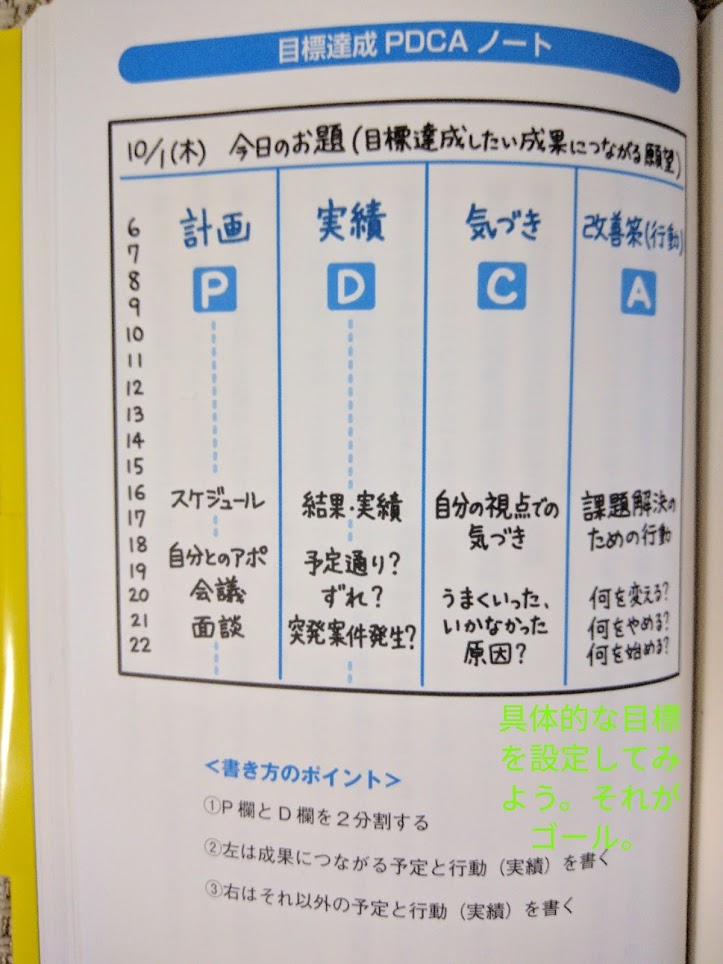 目標達成 PDCA ノート
10/1(木) 今日のお題(目標達成したい成果につながる願望)
計画 実績 気づき 改善策(行動)
P D C A
6
7
8
9
10
11
12
13
14
15
16
17
18
19
20
21
22
スケジュール
自分とのアポ
会議
面談
結果・実績
予定通り?
ずれ?
突発案件発生?
自分の視点での
気づき
うまくいった、
いかなかった
原因?
課題解決の
ための行動
何を変える?
何をやめる?
何を始める?
具体的な目標
を設定してみ
よう。それが
ゴール。
<書き方のポイント>
①P欄とD欄を2分割する
②左は成果につながる予定と行動(実績)を書く
③右はそれ以外の予定と行動(実績)を書く